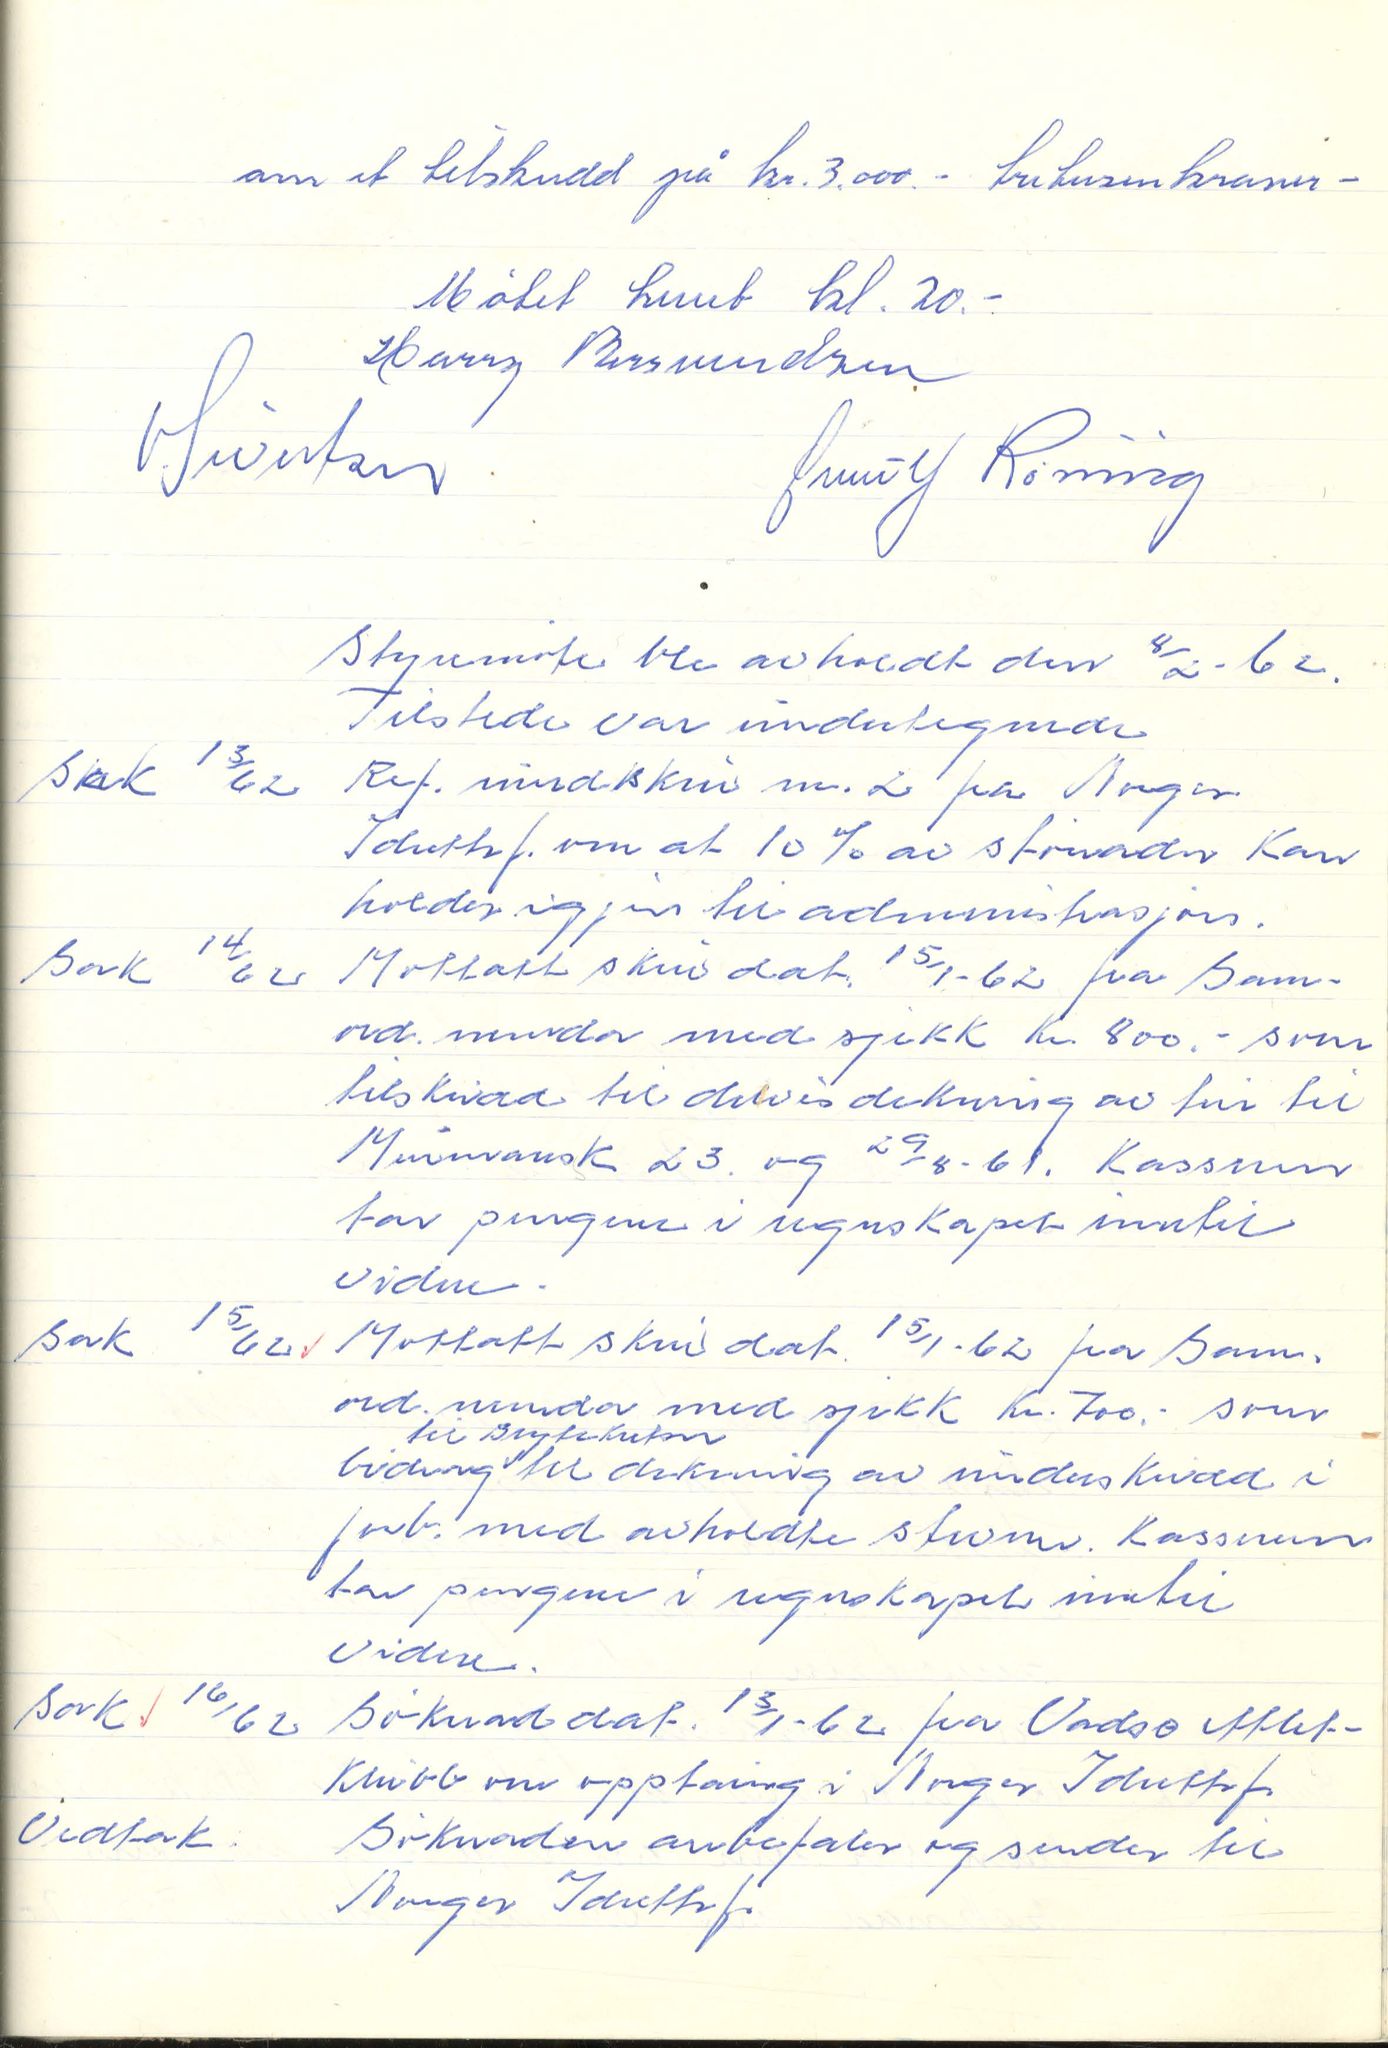 om et tilskudd på kr. 3.000.- tretusenkroner-
Møtet hevet kl. 20.-
Harry
Sivertsen
Röning
Styremöte ble avholdt den 8/2-62.
Tilstede var undertegnede
Sak 13/62 Ref. rundskriv nr. 2 fra Norges
Idrettsf. om at 10% av stönaden kan
holdes igjen til administrasjon.
Sak 14/62 Mottatt skriv dat. 15/1-62 fra Sam-
ord. nemda med sjekk kr. 800.- som
tilskudd til delvis dekning av tur til
Murmansk 23. og 29/8-61. Kasseren
tar pengene i regnskapet inntil
videre.
Sak 15/62 Mottatt skriv dat. 15/1-62 fra Sam.
ord. nemda med sjekk kr. 700.- som
til Brytekretsen
bidrag til dekning av underskudd i
forb. med avholdte stevne. Kasseren
tar pengene i regnskapet inntil
videre.
Sak 16/62 Söknad dat. 13/1-62 fra Vadsø atlet-
klubb om opptaing i Norges Idrettsf.
Vedtak. Söknaden anbefales og sendes til
Norges Idrettsf.